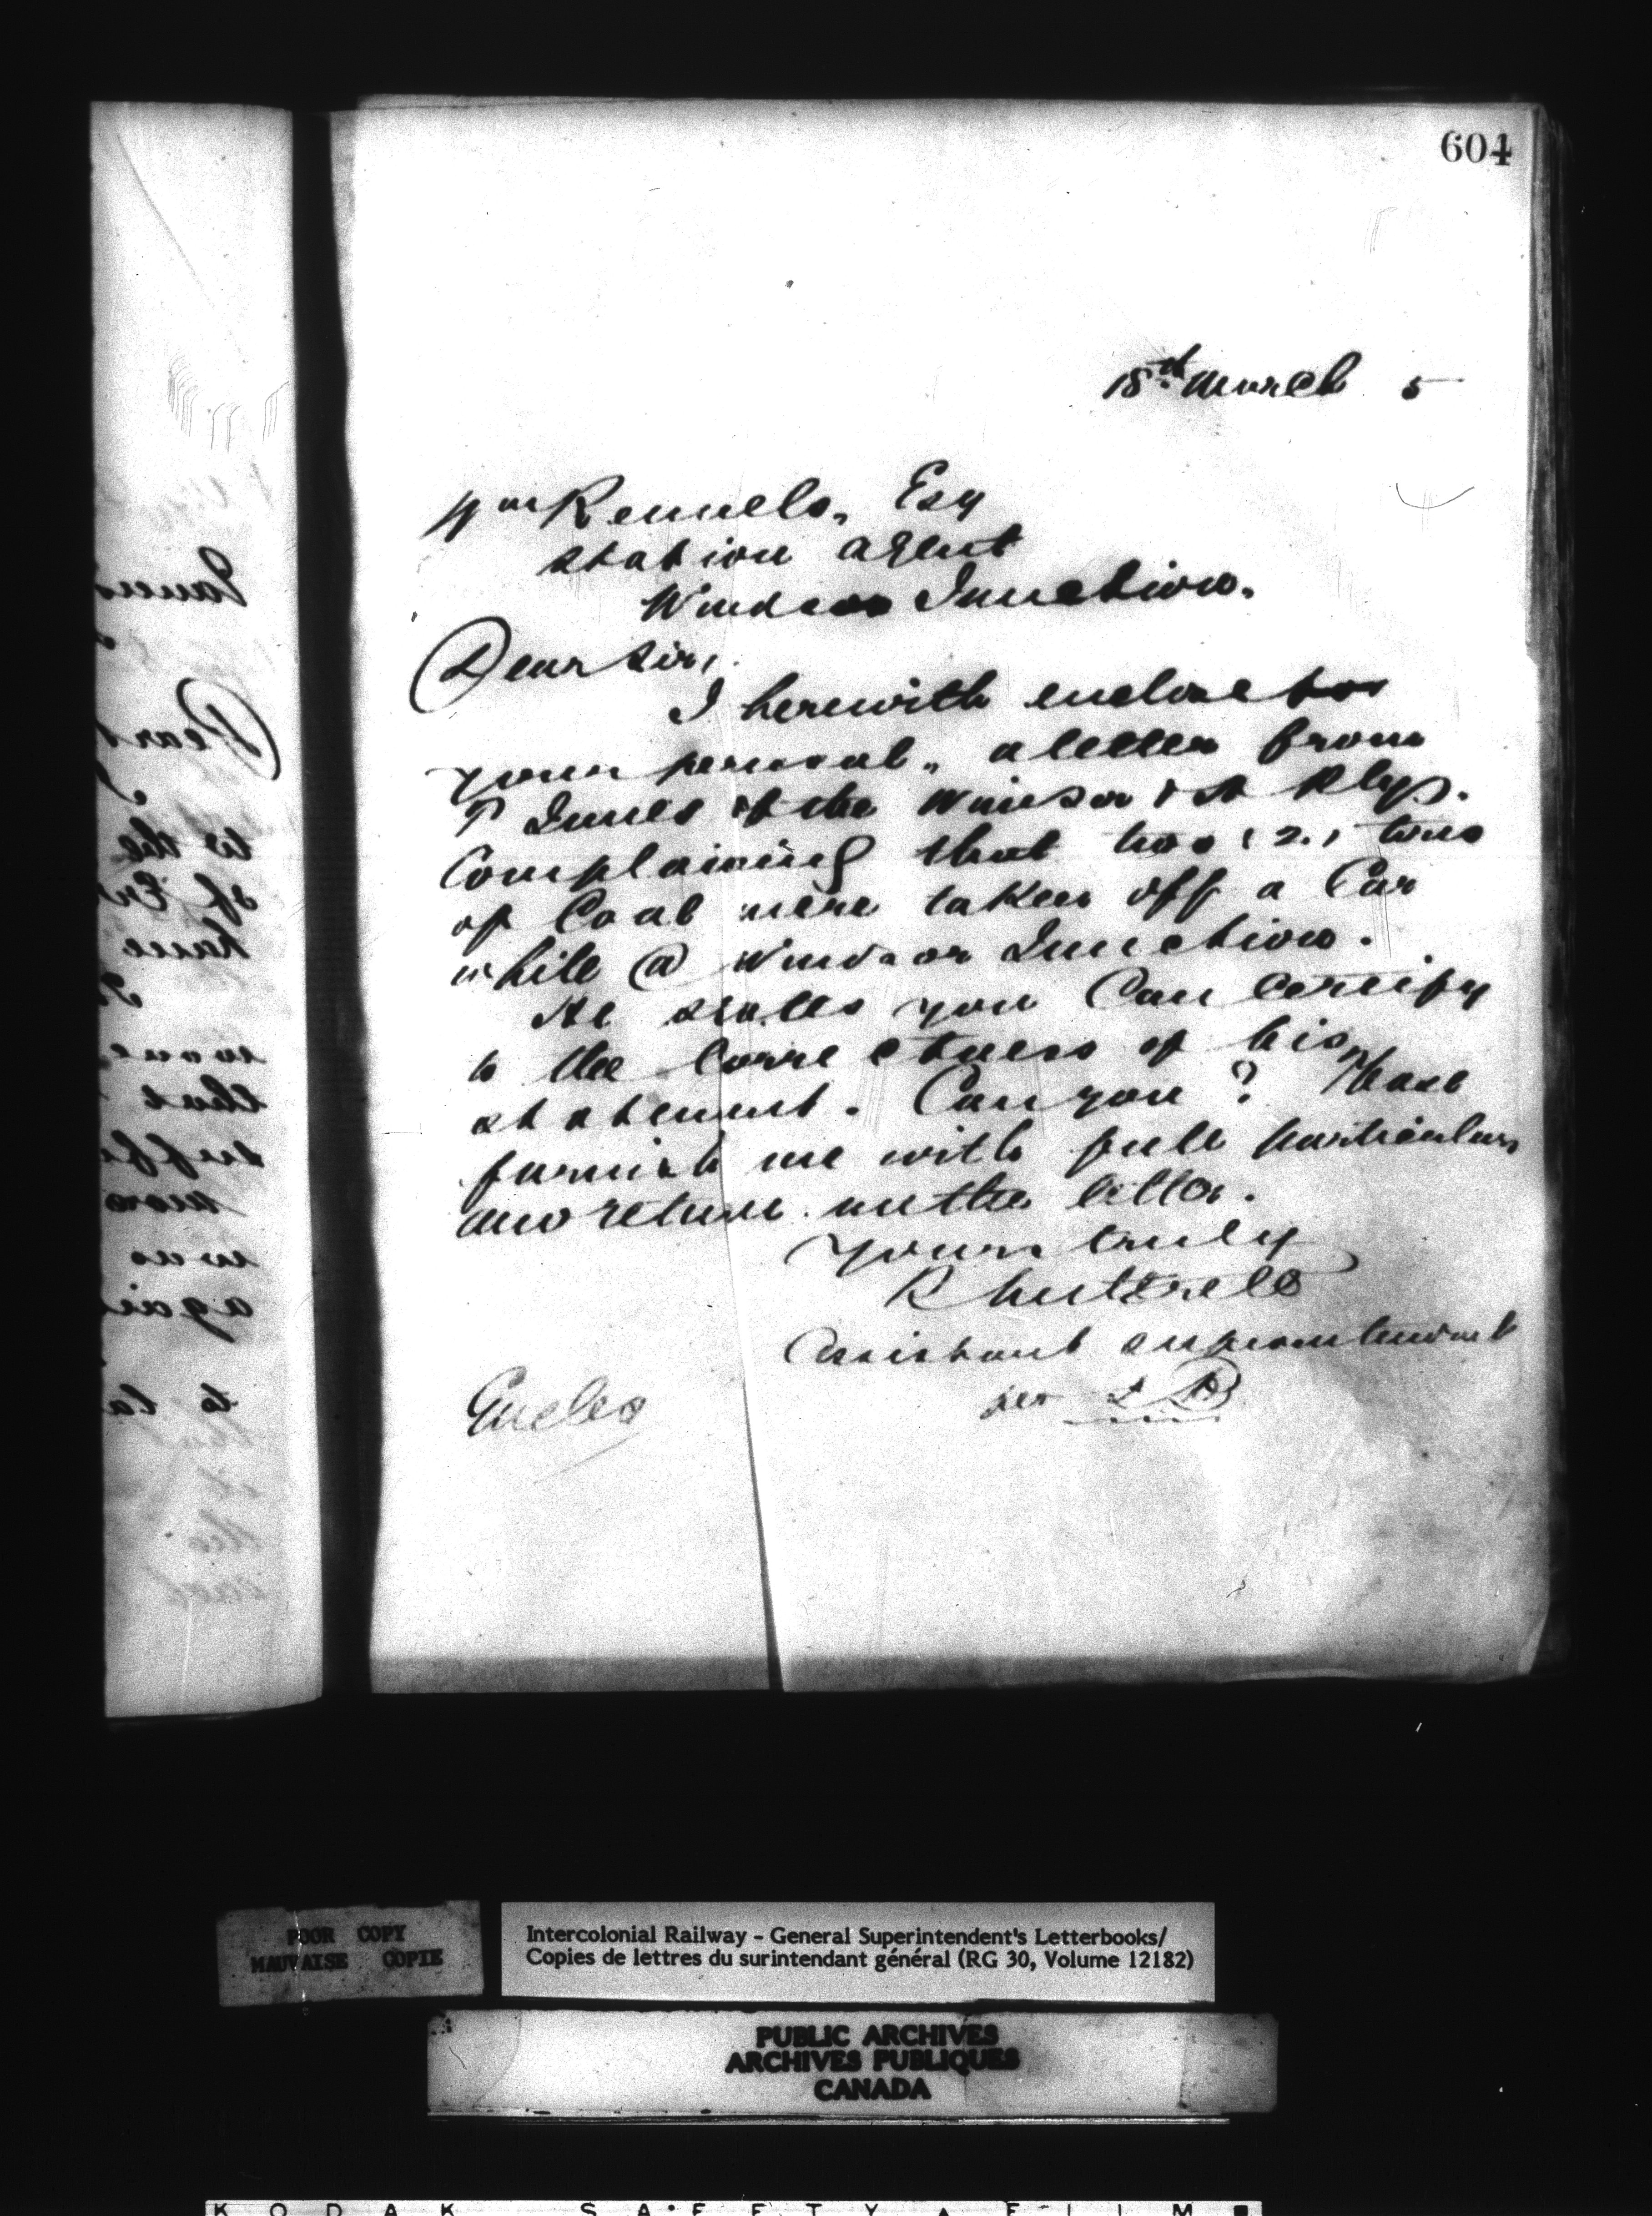 604
18th March 5
Wm Rennels, Esq
Station Agent
Windsor Junction.
Dear Sir,
I herewith enclose for
your perusal, a letter from
P Innes of the Windsor & A Rlys.
Complaining that two (2.) tons
of Coal were taken off a Car
while @ Windsor Junction.
He states you Can Certify
to the Correctness of his
statement. Can you? Please
furnish me with full particulars
and return me the letter.
Yours truly
R Luttrell
Assistant Superintendent
per
Enclo
POOR COPY
MAUVAISE COPIE
Intercolonial Railway - General Superintendent's Letterbooks/
Copies de lettres du surintendant général (RG 30, Volume 12182)
PUBLIC ARCHIVES
ARCHIVES PUBLIQUES
CANADA
KODAK SAFETY FILM